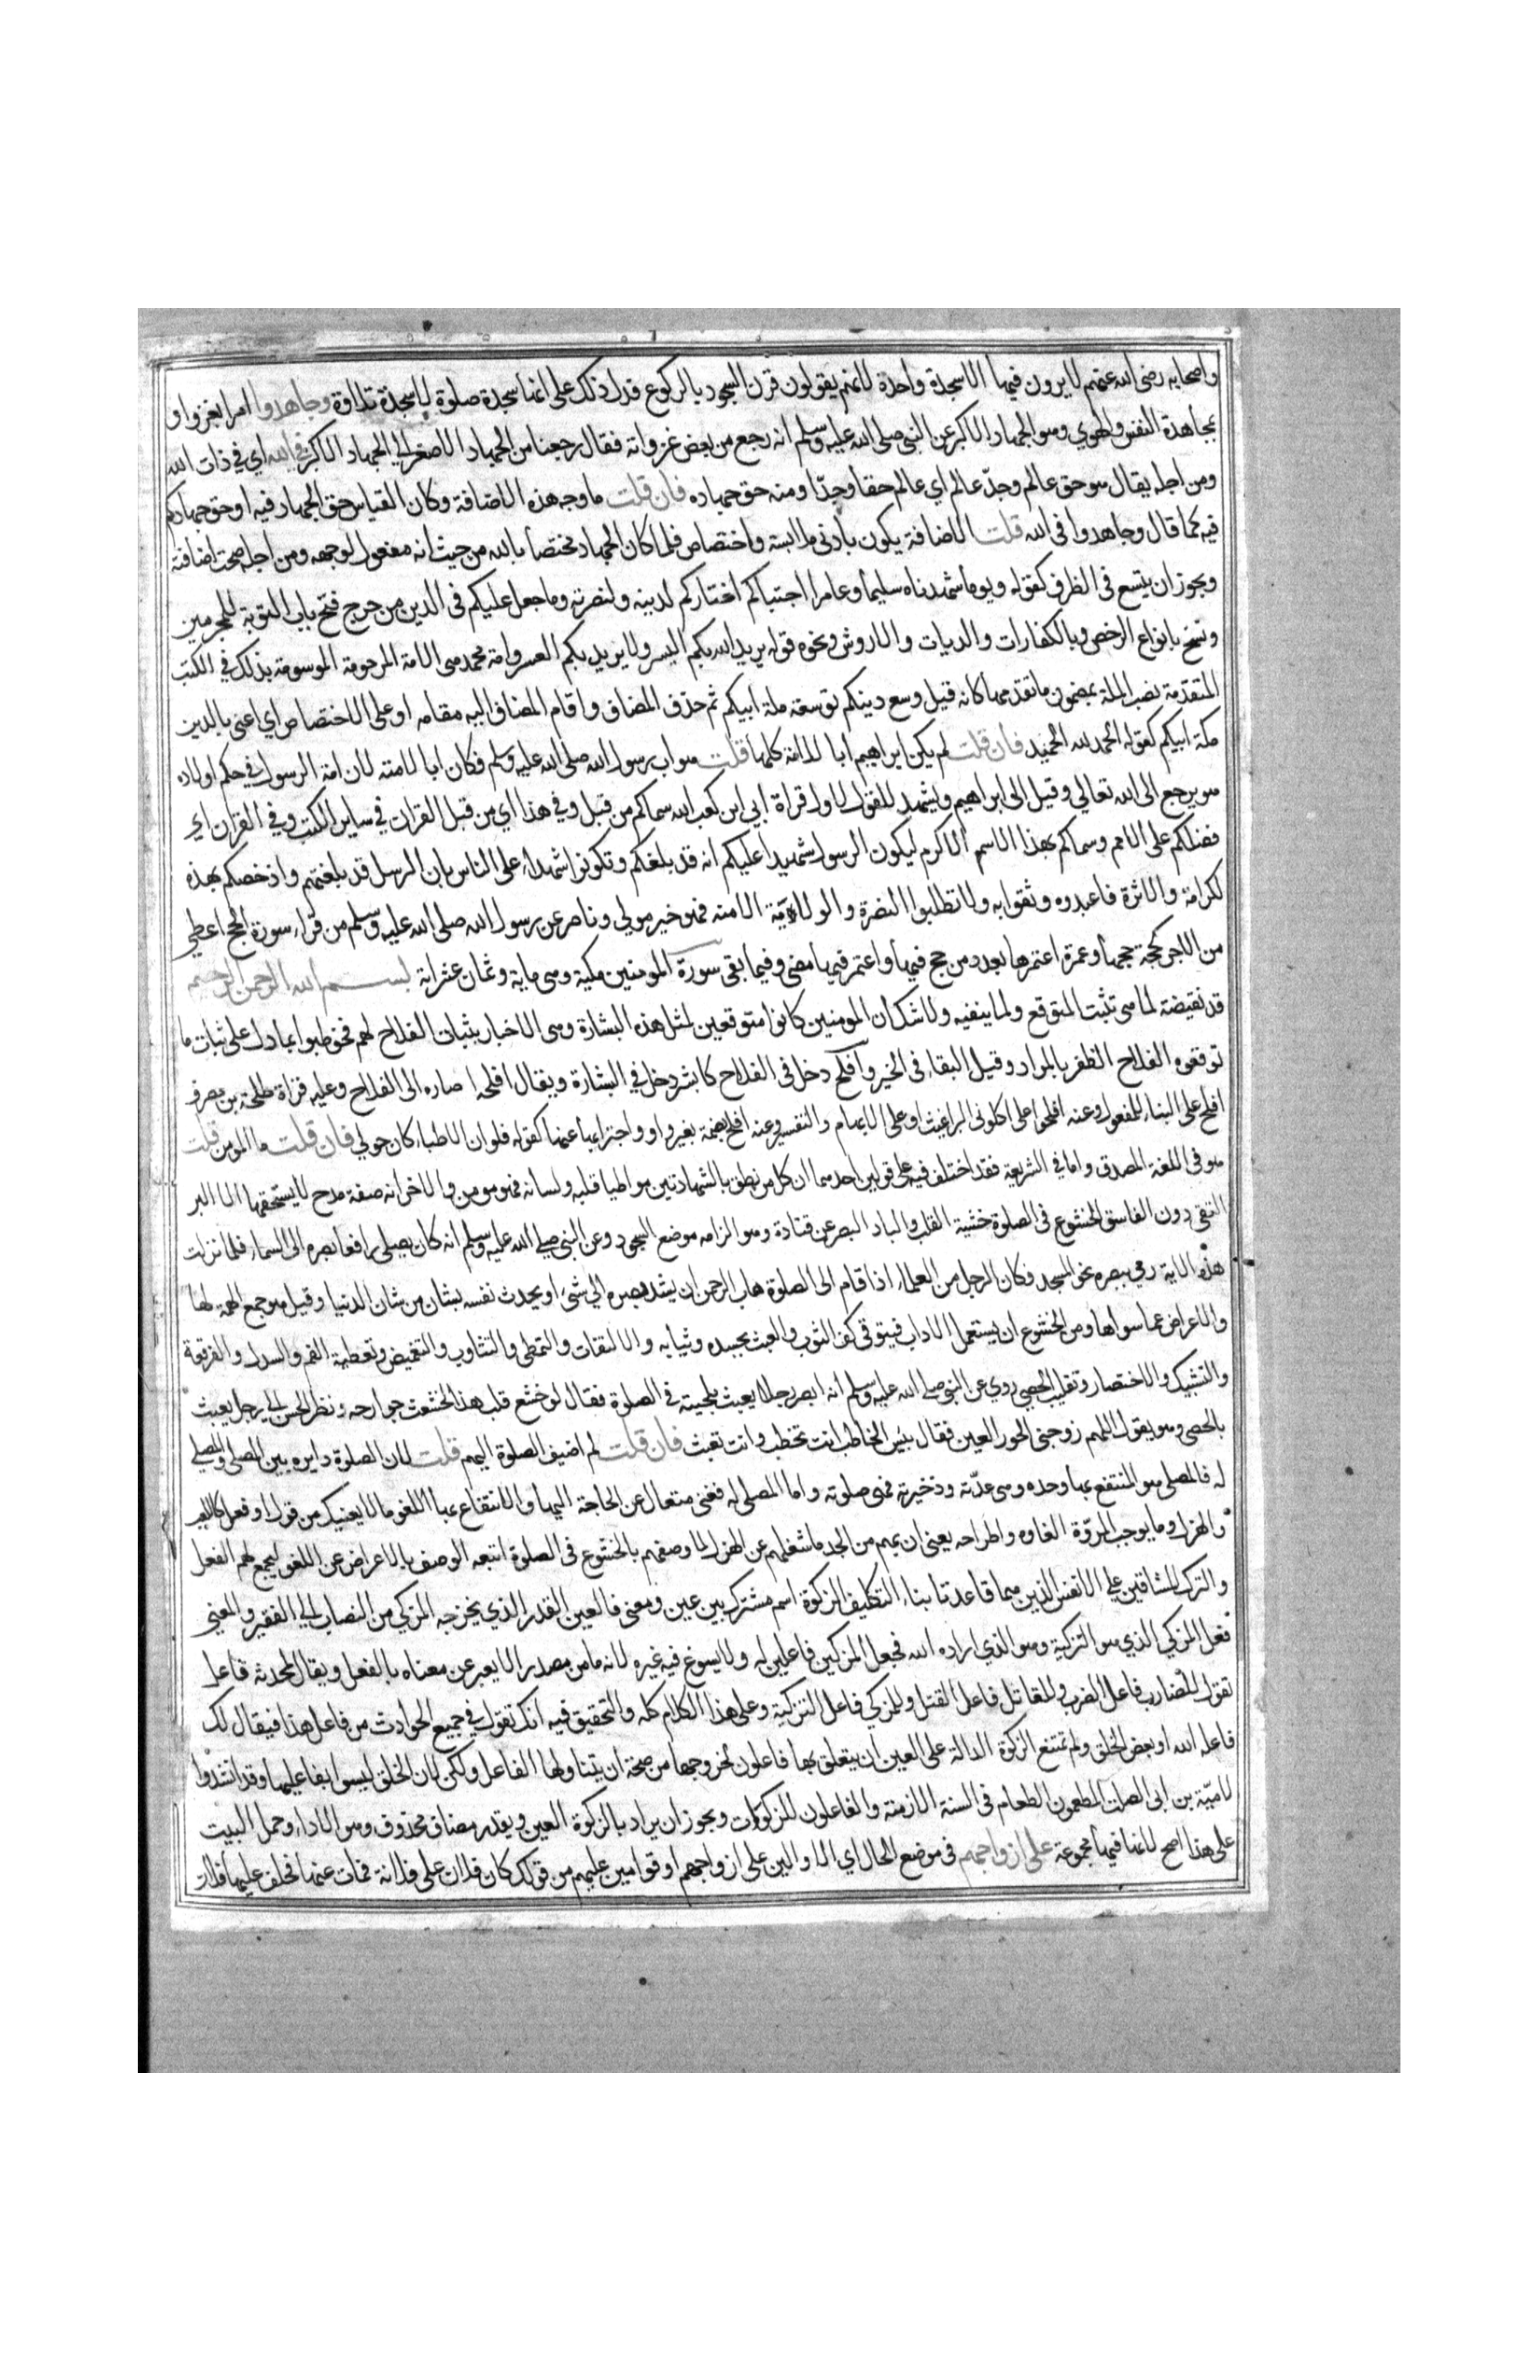 واصحابه رضى الله عنهم لا يرون فيها الا سجدة واحدة لانهم يقولون قرن السجود بالركوع فدل ذلك على انها سجدة صلوة لا سجدة تلاوة وجاهدوا امر بغزو او
بمجاهدة النفس والهوي وهو الجهاد الاكبر عن النبى صلى الله عليه وسلم انه رجع من بعض غزواته فقال رجعنا من الجهاد الاصغر الي الجهاد الاكبر في الله اي في ذات الله
ومن اجله يقال هو حق عالم وجدّ عالم اي عالم حقا وجدّا ومنه حق جهاده فان قلت ما وجه هذه الاضافة وكان القياس حق الجهاد فيه او حق جهادكم
فيه كما قال وجاهدوا فى الله قلت الاضافة يكون بادنى ملابسة واختصاص فلما كان الجهاد مختصا بالله من حيث انه مفعول لوجهه ومن اجله صحت اضافته
ويجوز ان يتسع فى الظرف كقوله ويوما شهدناه سليما وعامرا اجتباكم اختاركم لدينه ولنصرته وما جعل عليكم فى الدين من حرج فتح باب التوبة للمجرمين
وفسح بانواع الرخص وبالكفارات والديات والاروش ونحوه قوله يريد الله بكم اليسر ولا يريد بكم العسر وامة محمد هى الامة المرحومة الموسومة بذلك في الكتب
المتقدمة نصب الملة بمضمون ما تقدمها كانه قيل وسع دينكم توسعة ملة ابيكم ثم حذف المضاف واقام المضاف اليه مقامه او على الاختصاص اي اعنى بالدين
ملة ابيكم كقوله الحمد لله الحميد فان قلت لم يكن ابراهيم ابا للامة كلها قلت هو اب رسول الله صلى الله عليه وسلم فكان ابا لامته لان امة الرسول في حكم اولاده
هو يرجع الى الله تعالي وقيل الى ابراهيم ويشهد للقول الاول قراة ابي ابن كعب الله سماكم من قبل وفي هذا اي من قبل القران في ساير الكتب وفي القران اي
فضلكم على الامم وسماكم بهذا الاسم الاكرم ليكون الرسول شهيدا عليكم انه قد بلغكم وتكونوا شهداء على الناس بان الرسل قد بلغتهم واذ خصكم بهذه
لكرامة والاثرة فاعبدوه وثقوا به ولا تطلبوا النصرة والولاية الا منه فهو خير مولي وناصر عن رسول الله صلى الله عليه وسلم من قراء سورة الحج اعطي
من الاجر كحجة حجها وعمرة اعتمرها بعدد من حج فيها واعتمر فيها مضى وفيما بقى سورة المومنين مكية وهى ماية وثمان عشراية بسم الله الرحمن الرحيم
قد نقيضة لما هى تثبت المتوقع ولما ينفيه ولا شك ان المومنين كانوا متوقعين لمثل هذه البشارة وهى الاخبار بثبات الفلاح لهم فخوطبوا بما دل على ثبات ما
توقعوه الفلاح الظفر بالمراد وقيل البقاء فى الخير وافلح دخل فى الفلاح كابشر دخل في البشارة ويقال افلحه اصاره الى الفلاح وعليه قراة طلحة بن مصرف
افلح على البناء للمفعول وعنه افلحوا على اكلونى البراغيث او على الابهام والتفسير وعنه افلح بضمة بغير واو واجتزا بها عنها كقوله فلو ان الاطبا كان حولي فان قلت ما المومن قلت
هو فى اللغة المصدق واما في الشريعة فقد اختلف فيه على قولين احدهما ان كل من نطق بالشهادتين مواطيا قلبه ولسانه فهو مومن والاخر انه صفة مدح لا يستحقها الا البر
التقى دون الفاسق الخشوع فى الصلوة خشية القلب والباد البصر عن قتادة وهو الزامه موضع السجود وعن النبى صلى الله عليه وسلم انه كان يصلي رافعا بصره الى السماء فلما نزلت
هذه الاية رمي ببصره نحو المسجد فكان الرجل من العلماء اذا قام الى الصلوة هاب الرحمن ان يشد بصره الي شيء او يحدث نفسه بشان من شان الدنيا وقيل هو جمع الهمة لها
والاعراض عما سواها ومن الخشوع ان يستعمل الاداب فيتوقى كف الثوب والعبث بجسده وثيابه والالتفات والتمطى والتثاوب والتغميض وتغطية الفم والسدل والفرقعة
والتشبيك والاختصار وتقليب الحصي روي عن النبى صلى الله عليه وسلم انه ابصر رجلا يعبث بلحيته في الصلوة فقال لو خشع قلب هذا لخشعت جوارحه ونظر الحسن الي رجل يعبث
بالحصى وهو يقول اللهم زوجنى الحور العين فقال بئس الخاطب انت تخطب وانت تعبث فان قلت لم اضيف الصلوة اليهم قلت لان الصلوة دايره بين المصلى والمصلي
له فالمصلى هو المنتفع بها وحده وهى عدّته وذخيرته فهى صلوته واما المصلى له فغنى متعال عن الحاجة اليها والانتفاع بها اللغو ما لا يعنيك من قول او فعل كاللعب
والهزل وما يوجب المروّة الغاوه واطراحه يعنى ان بهم من الجد ما شغلهم عن الهزل لما وصفهم بالخشوع فى الصلوة اتبعه الوصف بالاعراض عن اللغو ليجمع لهم الفعل
والترك الشاقين علي الانفس الذين هما قاعدتا بناء التكليف الزكوة اسم مشترك بين عين ومعنى فالعين القدر الذي يخرجه المزكي من النصاب الي الفقير والمعني
فعل المزكي الذي هو التزكية وهو الذي اراده الله فجعل المزكين فاعلين له ولا يسوغ فيه غيره لانه ما من مصدر الا يعبر عن معناه بالفعل ويقال لمحدثه فاعل
تقول للضارب فاعل الضرب وللقاتل فاعل القتل وللمزكي فاعل التزكية وعلى هذا الكلام كله والتحقيق فيه انك تقول في جميع الحوادث من فاعل هذا فيقال لك
فاعله الله او بعض الخلق ولم تمتنع الزكوة الدالة على العين ان يتعلق بها فاعلون لخروجها من صحة ان يتناولها الفاعل ولكن لان الخلق ليسوا بفاعليها وقد انشدوا
لاميّة بن ابى الصلت المطعمون الطعام فى السنة الازمنة والفاعلون للزكوات ويجوز ان يراد بالزكوة العين ويقدر مضاف محذوف وهو الاداء وحمل البيت
على هذا اصح لانها فيها مجموعة على ازواجهم فى موضع الحال اي الا والين على ازواجهم او قوامين عليهم من قولك كان فلان على فلانة فمات عنها فخلف عليها فلان